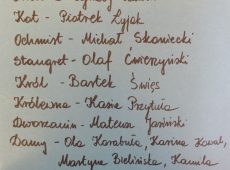 Kot - Piotrek Łyjak
Ochmist - Michał Skowiecki
Stangret - Olaf Ćwierzyński
Król - Bartek Święs
Królewna - Kasia Przytuła
Dworzanin - Mateusz Jasiński
Damy - Ola Karabuła, Karina Kowal,
Martyna Bielińska, Kamila